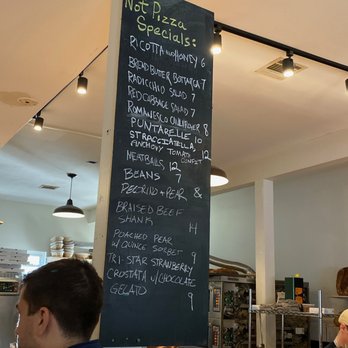 Not Pizza
Specials:
RICOTTA AND HONEY 6
BREAD BUTTER BOTTARGA 7
RADICCHIO SALAD 7
RED CABBAGE SALAD 7
ROMANESCO CAULIFLOWER 8
PUNTARELLE 10
STRACCIATELLA,
ANCHOVY TOMATO CONFIT 12
MEATBALLS 12
BEANS 7
PECORINO + PEAR 8
BRAISED BEEF
SHANK 14
POACHED PEAR
W/ QUINCE SORBET 9
TRI-STAR STRAWBERRY
CROSTATA W/ CHOCOLATE
GELATO 9